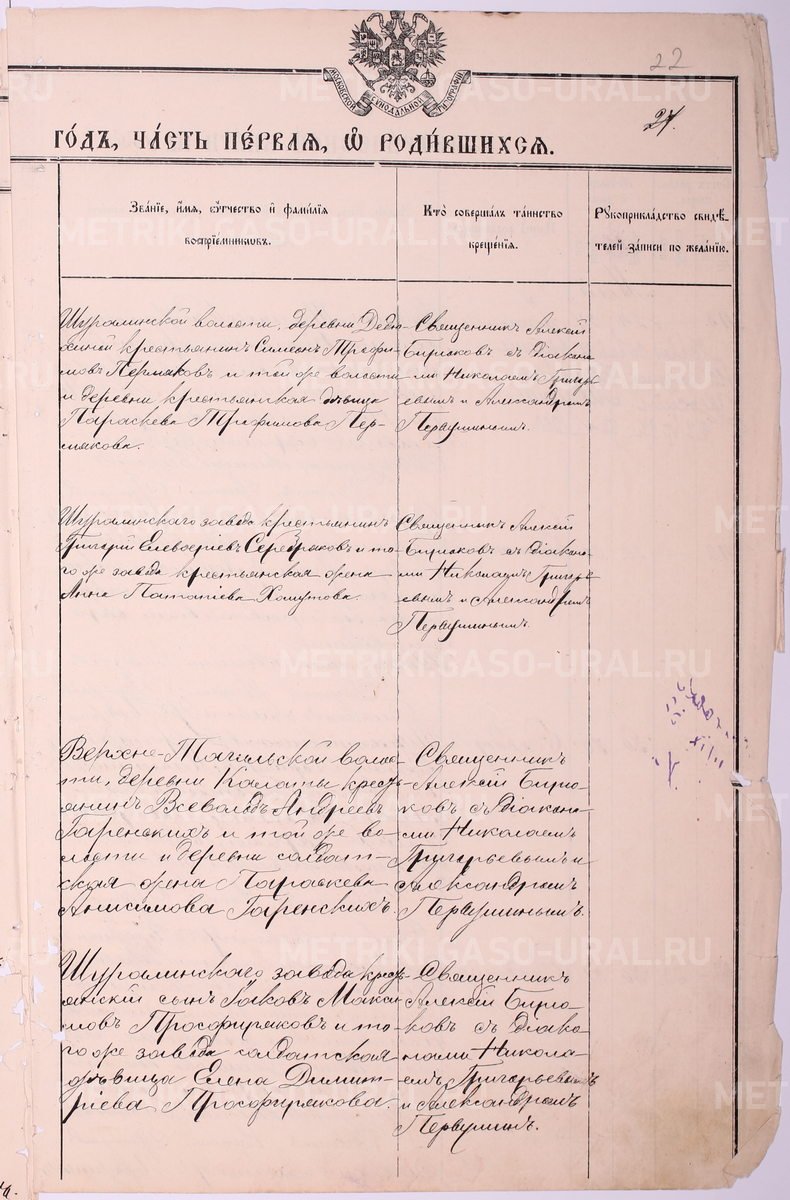 МОСКОВСКОЙ СѴНОДАЛЬНОЙ ТИПОГРАФІИ
22
27.
ГО́ДЪ, ЧА́СТЬ ПЕ́РВАЯ, Ѽ РОДИ́ВШИХСЯ.
Зва́нїе, и́мя, ѻ҆́тчество и҆ фами́лїя
воспрїе́мниковъ.
Кто̀ соверша́лъ та́инство
креще́нїя.
Рꙋкоприкла́дство свидѣ́-
телей за́писи по жела́нїю.
Шуралинской волости, деревни Дедю-
хиной крестьянинъ Симеонъ Трофи-
мовъ Пермяковъ и той же волости
и деревни крестьянская дѣвица
Параскева Трофимова Пер-
мякова.
Священникъ Алексій
Бирюковъ съ діакона-
ми Николаемъ Григорь-
евымъ и Александромъ
Первушинымъ.
Шуралинскаго завода крестьянинъ
Григорій Елевферіевъ Серебряковъ и то-
го же завода крестьянская жена
Анна Потапіева Хомутова.
Священникъ Алексій
Бирюковъ съ діакона-
ми Николаемъ Григорь-
евымъ и Александромъ
Первушинымъ.
Верхне-Тагильской волос-
ти, деревни Калаты кресть-
янинъ Всеволодъ Андреевъ
Гаренскихъ и той же во-
лости и деревни солдат-
ская жена Параскева
Анисимова Гаренскихъ.
Священникъ
Алексій Бирю-
ковъ съ діакона-
ми Николаемъ
Григорьевымъ и
Александромъ
Первушинымъ.
Шуралинскаго завода кресть-
янскій сынъ Іаковъ Макси-
мовъ Просфиряковъ и то-
го же завода солдатская
дѣвица Елена Димит-
ріева Просфирякова.
Священникъ
Алексій Бирю-
ковъ съ діако-
нами Никола-
емъ Григорьевымъ
и Александромъ
Первушин.
METRIKI.GASO-URAL.RU